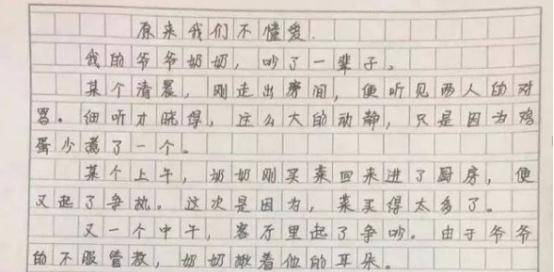 原来我们不懂爱.
我的爷爷奶奶，吵了一辈子。
某个清晨，刚走出房间，便听见两人的对
骂。细听才晓得，这么大的动静，只是因为鸡
蛋少煮了一个。
某个上午，奶奶刚买菜回来进了厨房，便
又起了争执。这次是因为，菜买得太多了。
又一个中午，客厅里起了争吵。由于爷爷
的不服管教，奶奶揪着他的耳朵。